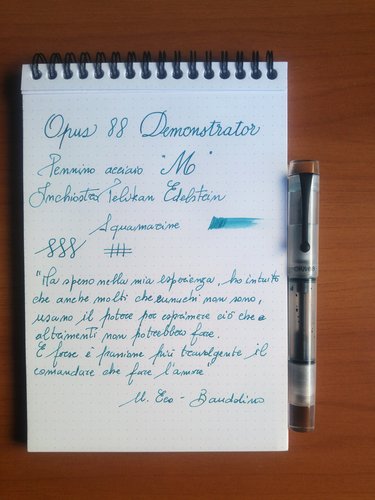 Opus 88 Demonstrator
Pennino acciaio "M"
Inchiostro Pelikan Edelstein
Aquamarine
"Ma spero nella mia esperienza, ho intuito
che anche molti che eunuchi non sono,
usano il potere per esprimere ciò che
altrimenti non potrebbero fare.
E forse è passione più travolgente il
comandare che fare l'amore"
U. Eco - Baudolino